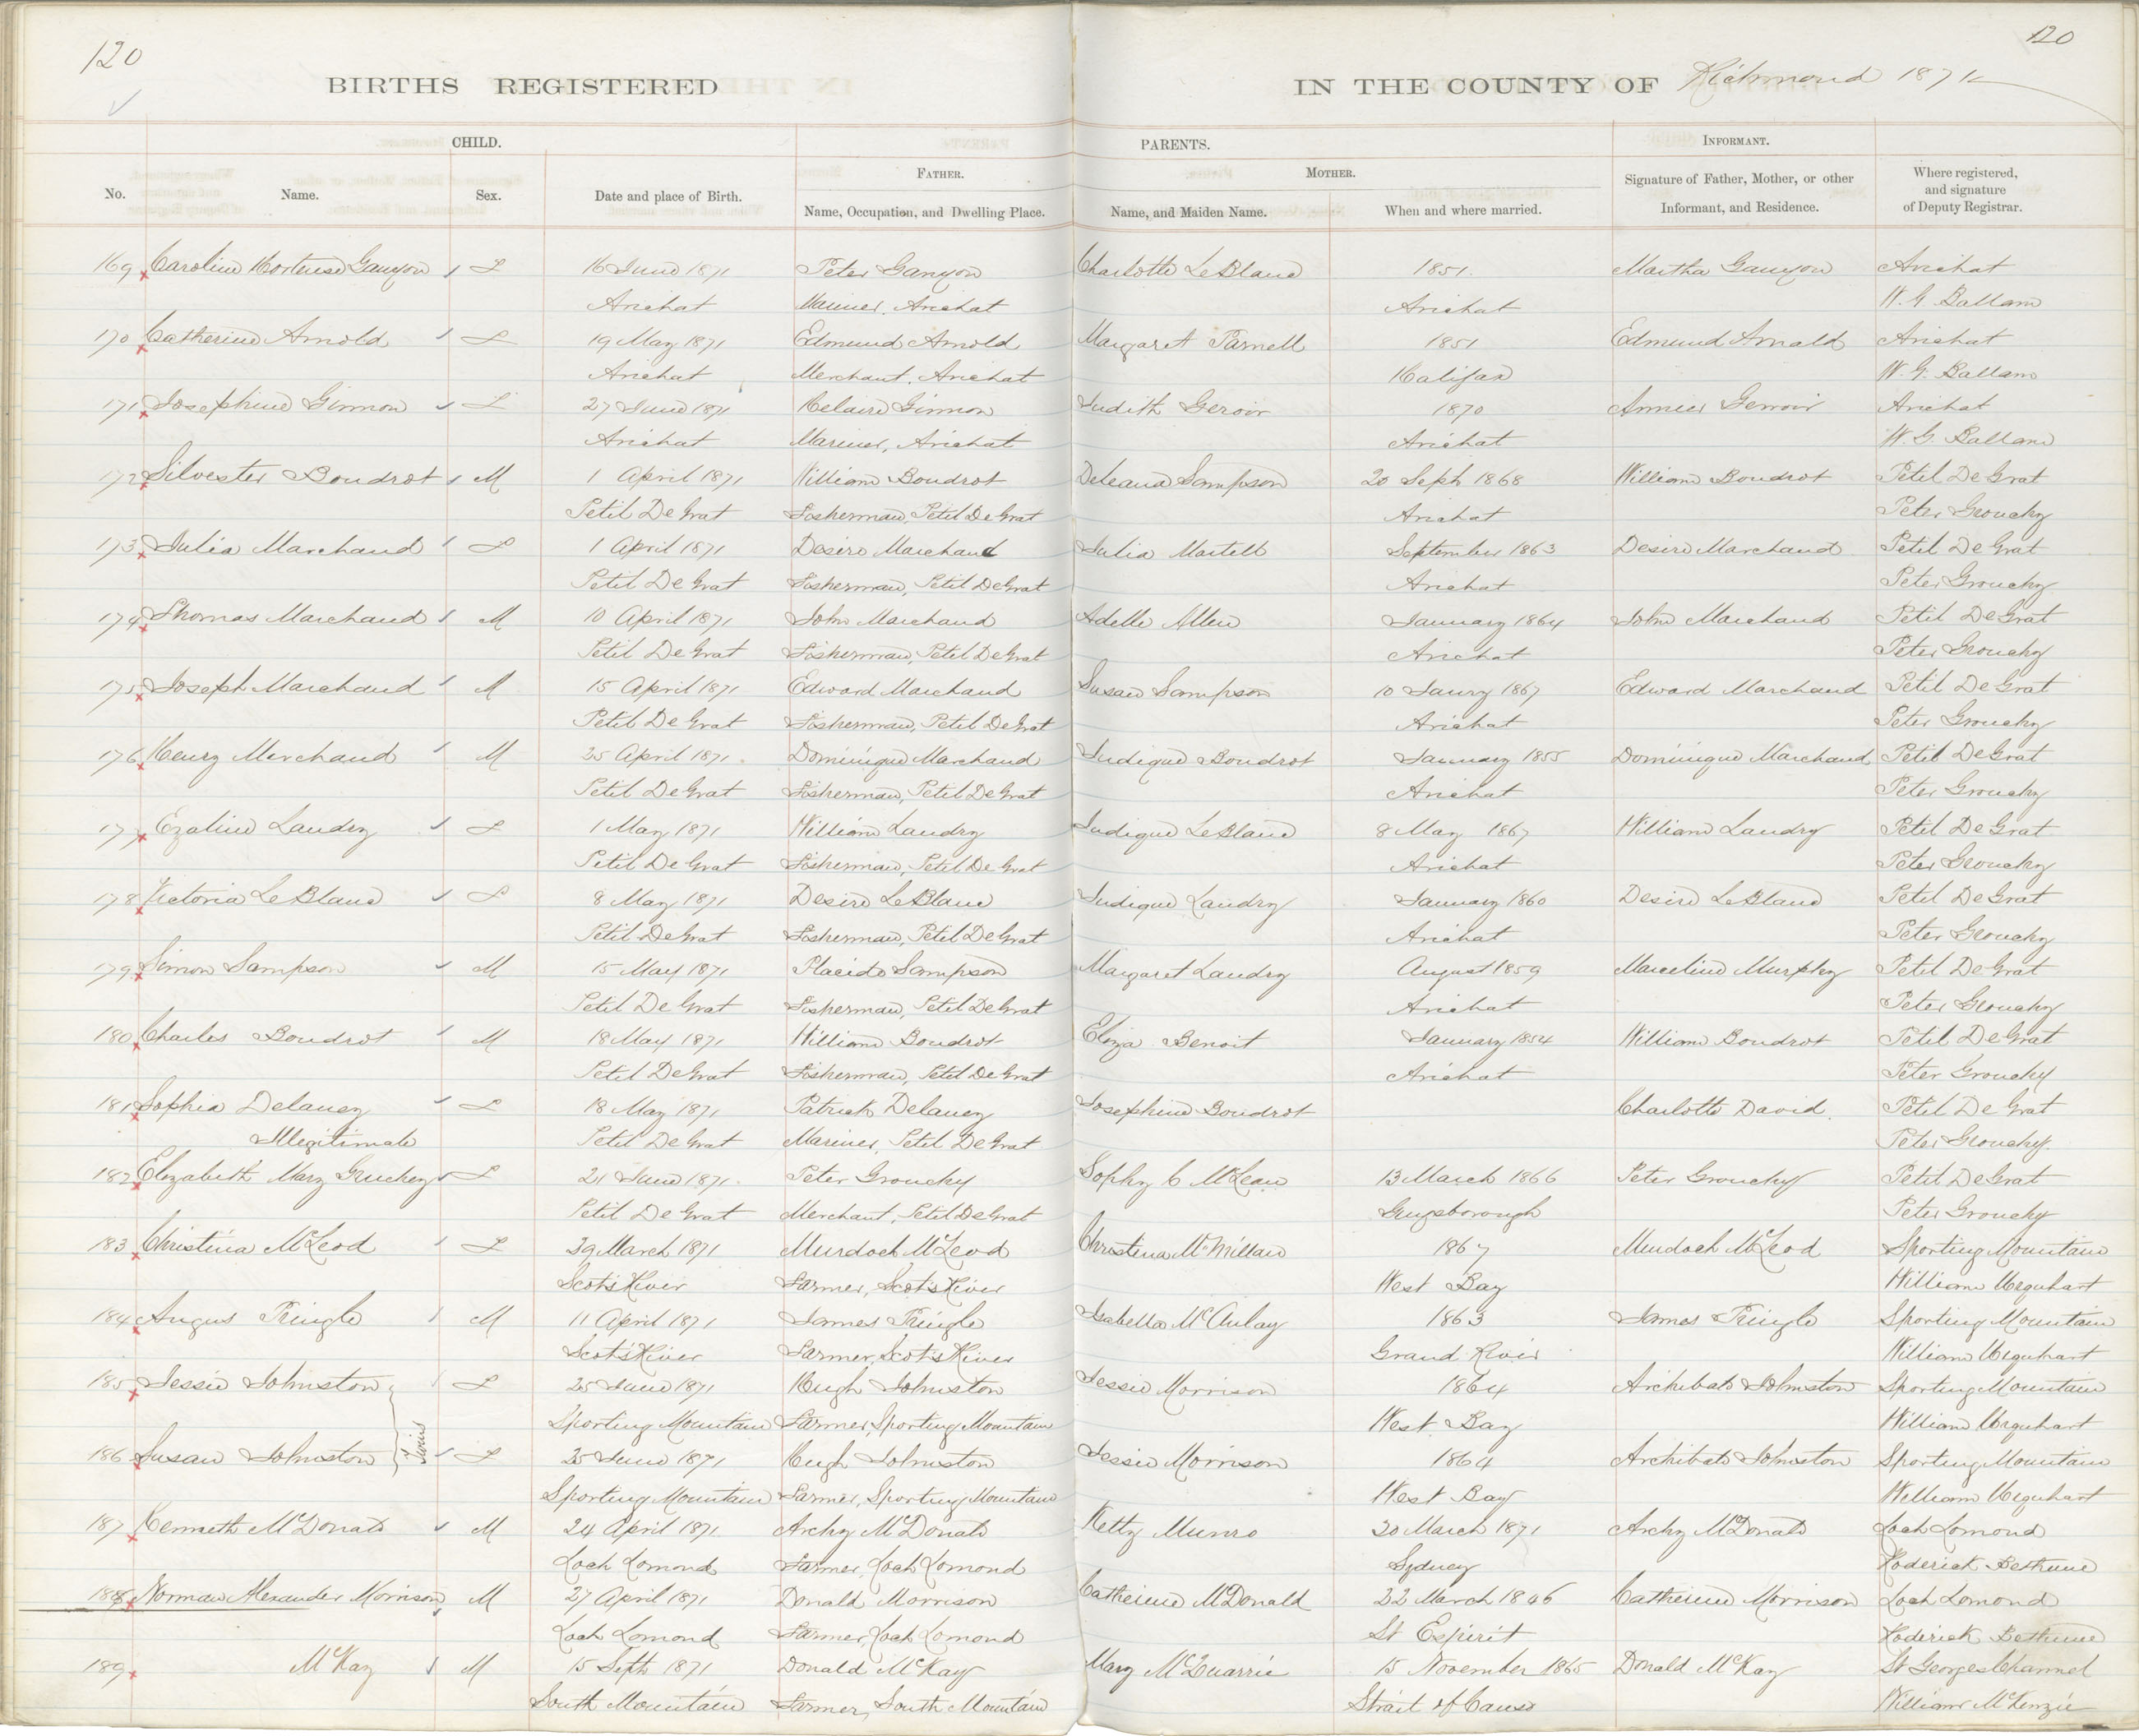 120
120
BIRTHS REGISTERED IN THE COUNTY OF Richmond 1871
CHILD. PARENTS. INFORMANT.
No. Name. Sex. Date and place of Birth. FATHER. MOTHER. Signature of Father, Mother, or other Where registered,
Name, Occupation, and Dwelling Place. Name, and Maiden Name. When and where married. Informant, and Residence. and signature
of Deputy Registrar.
169 Caroline Hortense Ganyon F 16 June 1871 Peter Ganyon Charlotte LeBlanc 1851 Martha Ganyon Arichat
Arichat Mariner, Arichat Arichat W. G. Ballam
170 Catherine Arnold F 19 May 1871 Edmund Arnold Margaret Parnell 1851 Edmund Arnold Arichat
Arichat Merchant, Arichat Halifax W. G. Ballam
171 Josephine Ginnon F 27 June 1871 Helaire Ginnon Judith Geroir 1870 Gerroir Arichat
Arichat Mariner, Arichat Arichat W. G. Ballam
172 Silvester Boudrot M 1 April 1871 William Boudrot Deleana Sampson 20 Sept 1868 William Boudrot Petit De Grat
Petit De Grat Fisherman, Petit De Grat Arichat Peter Grouchy
173 Julia Marchand F 1 April 1871 Desire Marchand Julia Martell September 1863 Desire Marchand Petit De Grat
Petit De Grat Fisherman, Petit DeGrat Arichat Peter Grouchy
174 Thomas Marchand M 10 April 1871 John Marchand Adelle Allen January 1864 John Marchand Petit DeGrat
Petit De Grat Fisherman, Petit DeGrat Arichat Peter Grouchy
175 Joseph Marchand M 15 April 1871 Edward Marchand Susan Sampson 10 Jany 1867 Edward Marchand Petit DeGrat
Petit De Grat Fisherman, Petit DeGrat Arichat Peter Grouchy
176 Henry Merchand M 25 April 1871 Dominique Marchand Judique Boudrot January 1855 Dominique Marchand Petit DeGrat
Petit DeGrat Fisherman, Petit DeGrat Arichat Peter Grouchy
177 Ezaline Landry F 1 May 1871 William Landry Judique LeBlanc 8 May 1867 William Landry Petit DeGrat
Petit De Grat Fisherman, Petit De Grat Arichat Peter Grouchy
178 Victoria LeBlanc F 8 May 1871 Desire LeBlanc Judique Landry January 1860 Desire LeBlanc Petit DeGrat
Petit DeGrat Fisherman, Petit DeGrat Arichat Peter Grouchy
179 Simon Sampson M 15 May 1871 Placide Sampson Margaret Landry August 1859 Marceline Murphy Petit DeGrat
Petit De Grat Fisherman, Petit DeGrat Arichat Peter Grouchy
180 Charles Boudrot M 18 May 1871 William Boudrot Eliza Benoit January 1854 William Boudrot Petit DeGrat
Petit DeGrat Fisherman, Petit De Grat Arichat Peter Grouchy
181 Sophia Delaney F 18 May 1871 Patrick Delaney Josephine Boudrot Charlotte David Petit De Grat
Illegitimate Petit De Grat Mariner, Petit De Grat Peter Grouchy
182 Elizabeth Mary Gruchey F 21 June 1871 Peter Grouchy Sophy C McLean 13 March 1866 Peter Grouchy Petit DeGrat
Petit De Grat Merchant, Petit DeGrat Guysborough Peter Grouchy
183 Christina McLeod F 29 March 1871 Murdoch McLeod Christina McMillan 1867 Murdoch McLeod Sporting Mountain
Scots River Farmer, Scots River West Bay William Urquhart
184 Angus Pringle M 11 April 1871 James Pringle Isabella McAulay 1863 James Pringle Sporting Mountain
Scots River Farmer, Scots River Grand River William Urquhart
185 Jessie Johnston F 25 June 1871 Hugh Johnston Jessie Morrison 1864 Archibald Johnston Sporting Mountain
Twins
Sporting Mountain Farmer, Sporting Mountain West Bay William Urquhart
186 Susan Johnston F 25 June 1871 Hugh Johnston Jessie Morrison 1864 Archibald Johnston Sporting Mountain
Sporting Mountain Farmer, Sporting Mountain West Bay William Urquhart
187 Kenneth McDonald M 24 April 1871 Archy McDonald Ketty Munro 20 March 1871 Archy McDonald Loch Lomond
Loch Lomond Farmer, Loch Lomond Sydney Roderick Bethune
188 Norman Alexander Morrison M 27 April 1871 Donald Morrison Catherine McDonald 22 March 1846 Catherine Morrison Loch Lomond
Loch Lomond Farmer, Loch Lomond St Espirit Roderick Bethune
189 McKay M 15 Septr 1871 Donald McKay Mary McQuarrie 15 November 1865 Donald McKay St Georges Channel
South Mountain Farmer, South Mountain Strait of Canso William McKenzie